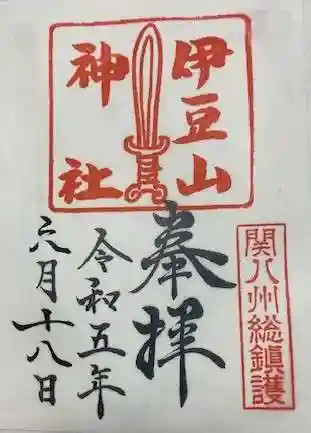 伊豆山
神社
関八州総鎮護
奉拝
令和五年
六月十八日